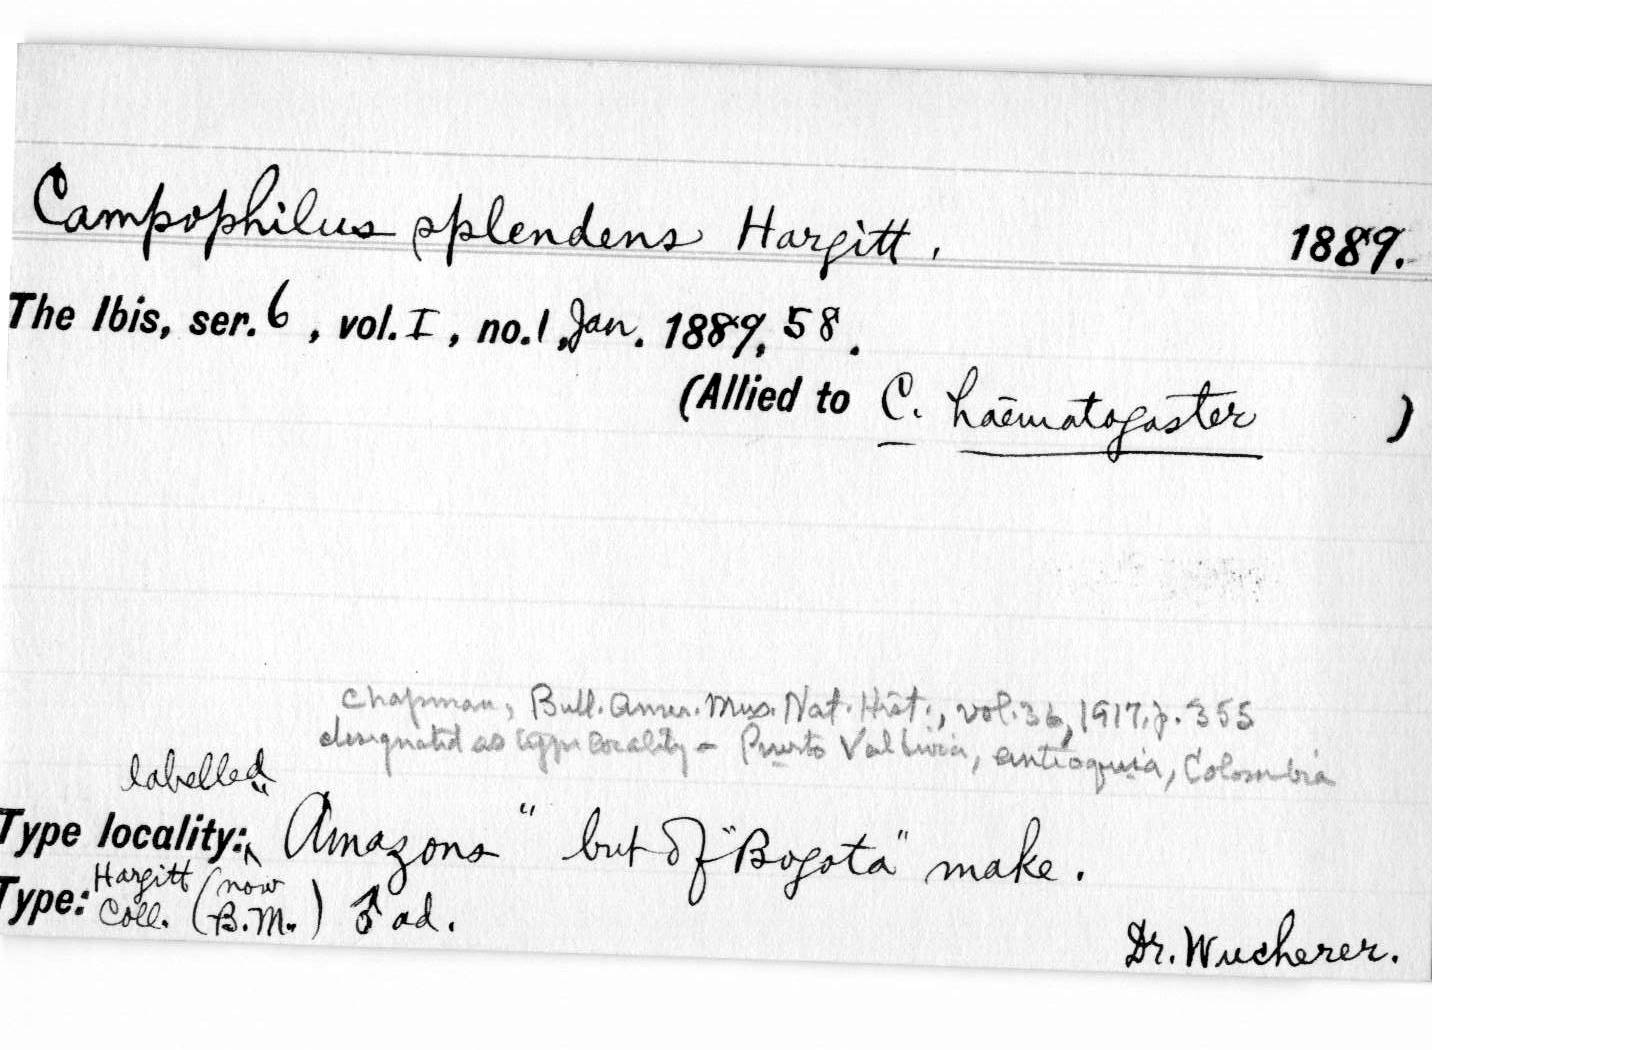 Campophilus splendens Hargitt. 1889.
The Ibis, ser. 6, vol. I, no. 1, Jan. 1889, 58.
(Allied to C. haematogaster )
Chapman, Bull. Amer. Mus. Nat. Hist., vol. 36, 1917, p. 355
designated as type locality - Puerto Valdivia, Antioquia, Colombia
labelled
Type locality: "Amazons" but of "Bogota" make.
Type: Hargitt Coll. (now B.M.) ♂ ad.
Dr. Wucherer.